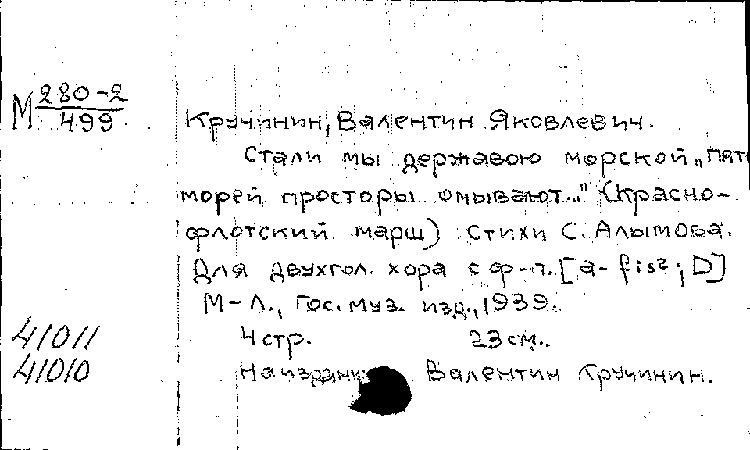 М 280-2
499
Кручинин, Валентин Яковлевич.
Стали мы державою морской „Пяти
морей просторы омывают..." (Красно-
флотский марш) Стихи С. Алымова.
Для двухгол. хора с ф-п. [a-fis²; D]
М-Л., Гос. муз. изд., 1939.
41011 4 стр. 23 см.
41010 Валентин Кручинин.